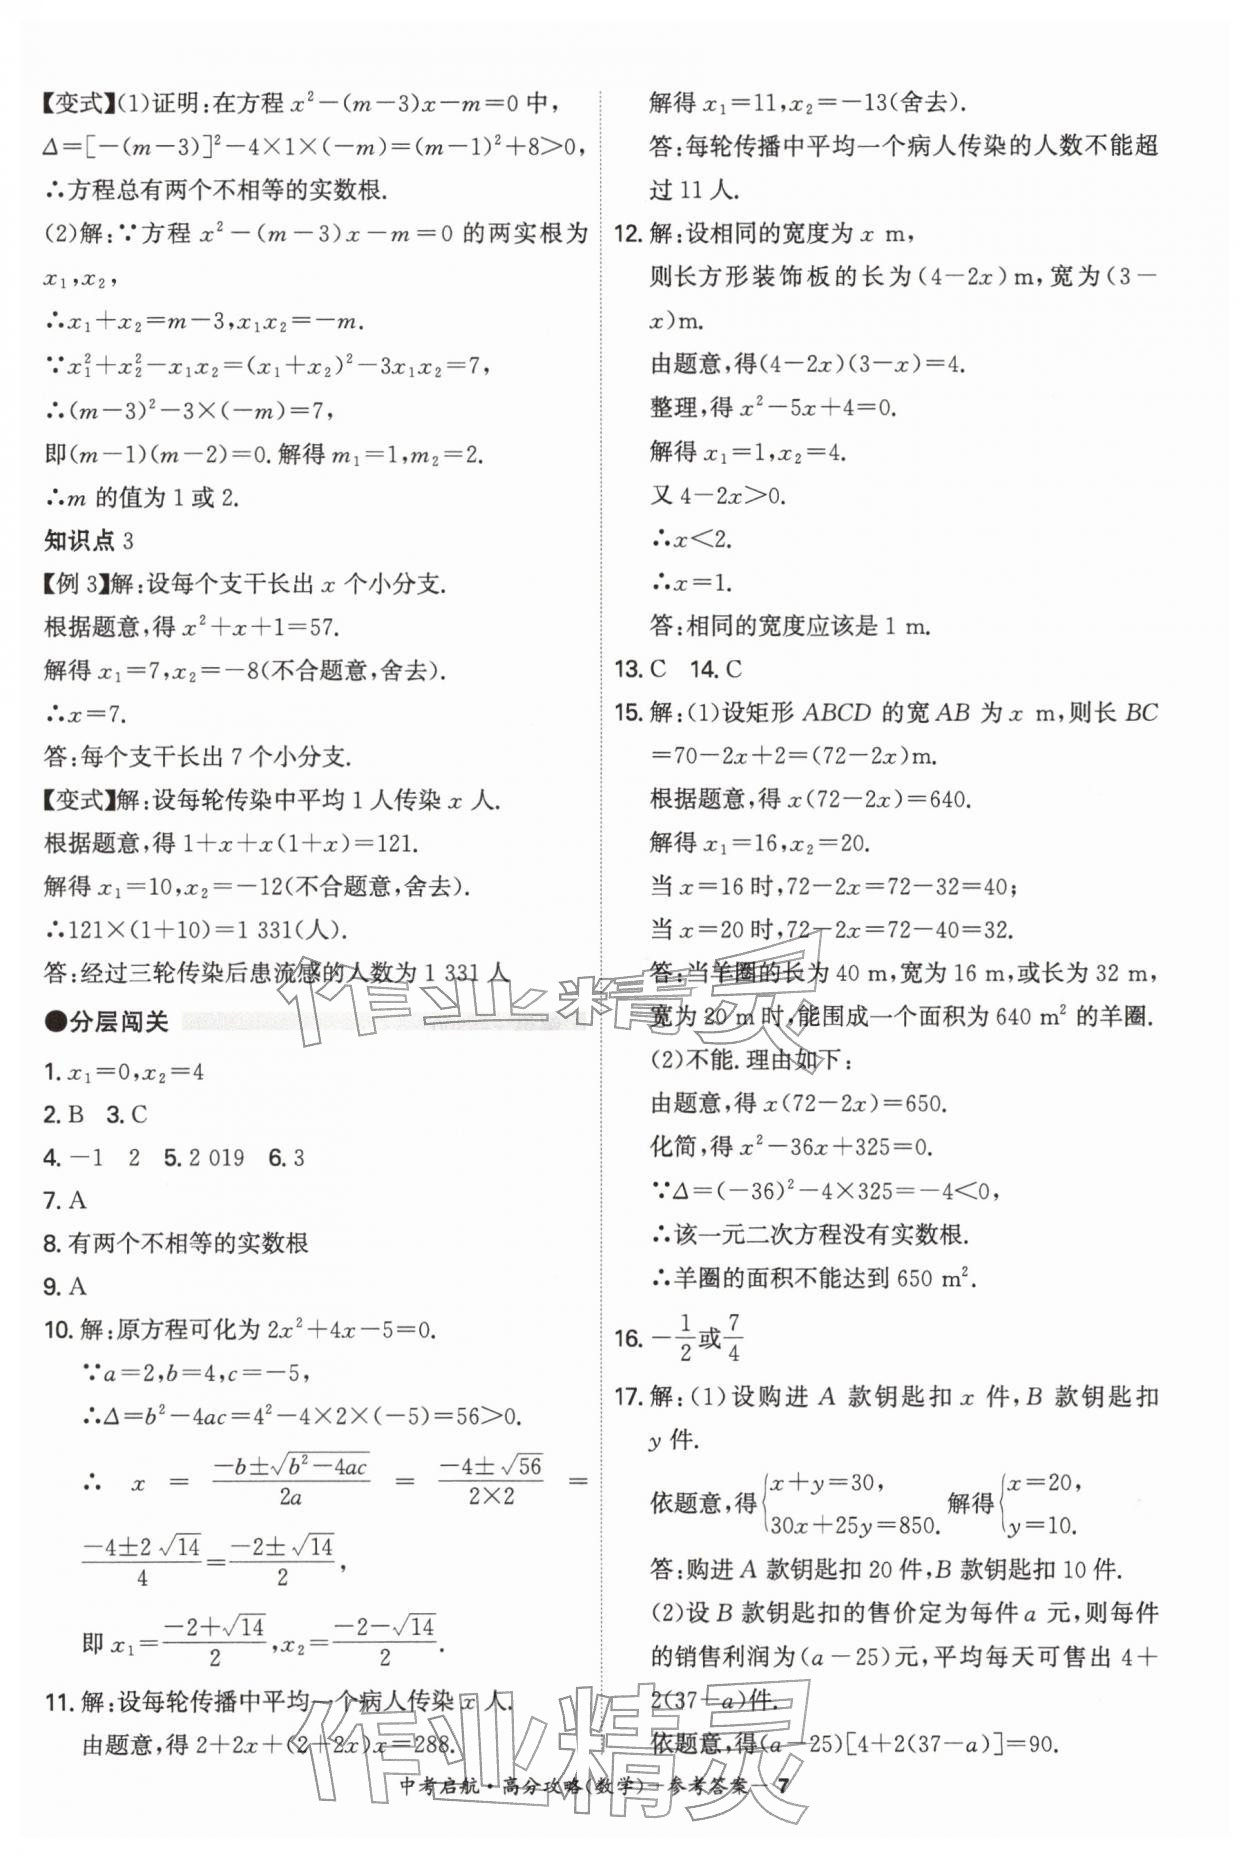 【变式】(1)证明:在方程 x²－(m－3)x－m＝0 中,
Δ＝[－(m－3)]²－4×1×(－m)＝(m－1)²＋8＞0,
∴方程总有两个不相等的实数根.
(2)解:∵方程 x²－(m－3)x－m＝0 的两实根为
x₁,x₂,
∴x₁＋x₂＝m－3,x₁x₂＝－m.
∵x₁²＋x₂²－x₁x₂＝(x₁＋x₂)²－3x₁x₂＝7,
∴(m－3)²－3×(－m)＝7,
即(m－1)(m－2)＝0.解得 m₁＝1,m₂＝2.
∴m 的值为 1 或 2.
知识点 3
【例 3】解:设每个支干长出 x 个小分支.
根据题意,得 x²＋x＋1＝57.
解得 x₁＝7,x₂＝－8(不合题意,舍去).
∴x＝7.
答:每个支干长出 7 个小分支.
【变式】解:设每轮传染中平均 1 人传染 x 人.
根据题意,得 1＋x＋x(1＋x)＝121.
解得 x₁＝10,x₂＝－12(不合题意,舍去).
∴121×(1＋10)＝1 331(人).
答:经过三轮传染后患流感的人数为 1 331 人
●分层闯关
1. x₁＝0,x₂＝4
2. B 3. C
4. －1 2 5. 2 019 6. 3
7. A
8. 有两个不相等的实数根
9. A
10. 解:原方程可化为 2x²＋4x－5＝0.
∵a＝2,b＝4,c＝－5,
∴Δ＝b²－4ac＝4²－4×2×(－5)＝56＞0.
∴ x ＝ (－b±√(b²－4ac))/(2a) ＝ (－4±√56)/(2×2) ＝
(－4±2√14)/4＝(－2±√14)/2,
即 x₁＝(－2＋√14)/2,x₂＝(－2－√14)/2.
11. 解:设每轮传播中平均一个病人传染 x 人.
由题意,得 2＋2x＋(2＋2x)x＝288.
解得 x₁＝11,x₂＝－13(舍去).
答:每轮传播中平均一个病人传染的人数不能超
过 11 人.
12. 解:设相同的宽度为 x m,
则长方形装饰板的长为(4－2x)m,宽为(3－
x)m.
由题意,得(4－2x)(3－x)＝4.
整理,得 x²－5x＋4＝0.
解得 x₁＝1,x₂＝4.
又 4－2x＞0.
∴x＜2.
∴x＝1.
答:相同的宽度应该是 1 m.
13. C 14. C
15. 解:(1)设矩形 ABCD 的宽 AB 为 x m,则长 BC
＝70－2x＋2＝(72－2x)m.
根据题意,得 x(72－2x)＝640.
解得 x₁＝16,x₂＝20.
当 x＝16 时,72－2x＝72－32＝40;
当 x＝20 时,72－2x＝72－40＝32.
答:当羊圈的长为 40 m,宽为 16 m,或长为 32 m,
宽为 20 m时,能围成一个面积为 640 m² 的羊圈.
(2)不能.理由如下:
由题意,得 x(72－2x)＝650.
化简,得 x²－36x＋325＝0.
∵Δ＝(－36)²－4×325＝－4＜0,
∴该一元二次方程没有实数根.
∴羊圈的面积不能达到 650 m².
16. －1/2或7/4
17. 解:(1)设购进 A 款钥匙扣 x 件,B 款钥匙扣
y 件.
依题意,得{x＋y＝30, 30x＋25y＝850. 解得{x＝20, y＝10.
答:购进 A 款钥匙扣 20 件,B 款钥匙扣 10 件.
(2)设 B 款钥匙扣的售价定为每件 a 元,则每件
的销售利润为(a－25)元,平均每天可售出 4＋
2(37－a)件.
依题意,得(a－25)[4＋2(37－a)]＝90.
中考启航·高分攻略(数学)－参考答案－ 7
作业精灵
作业精灵